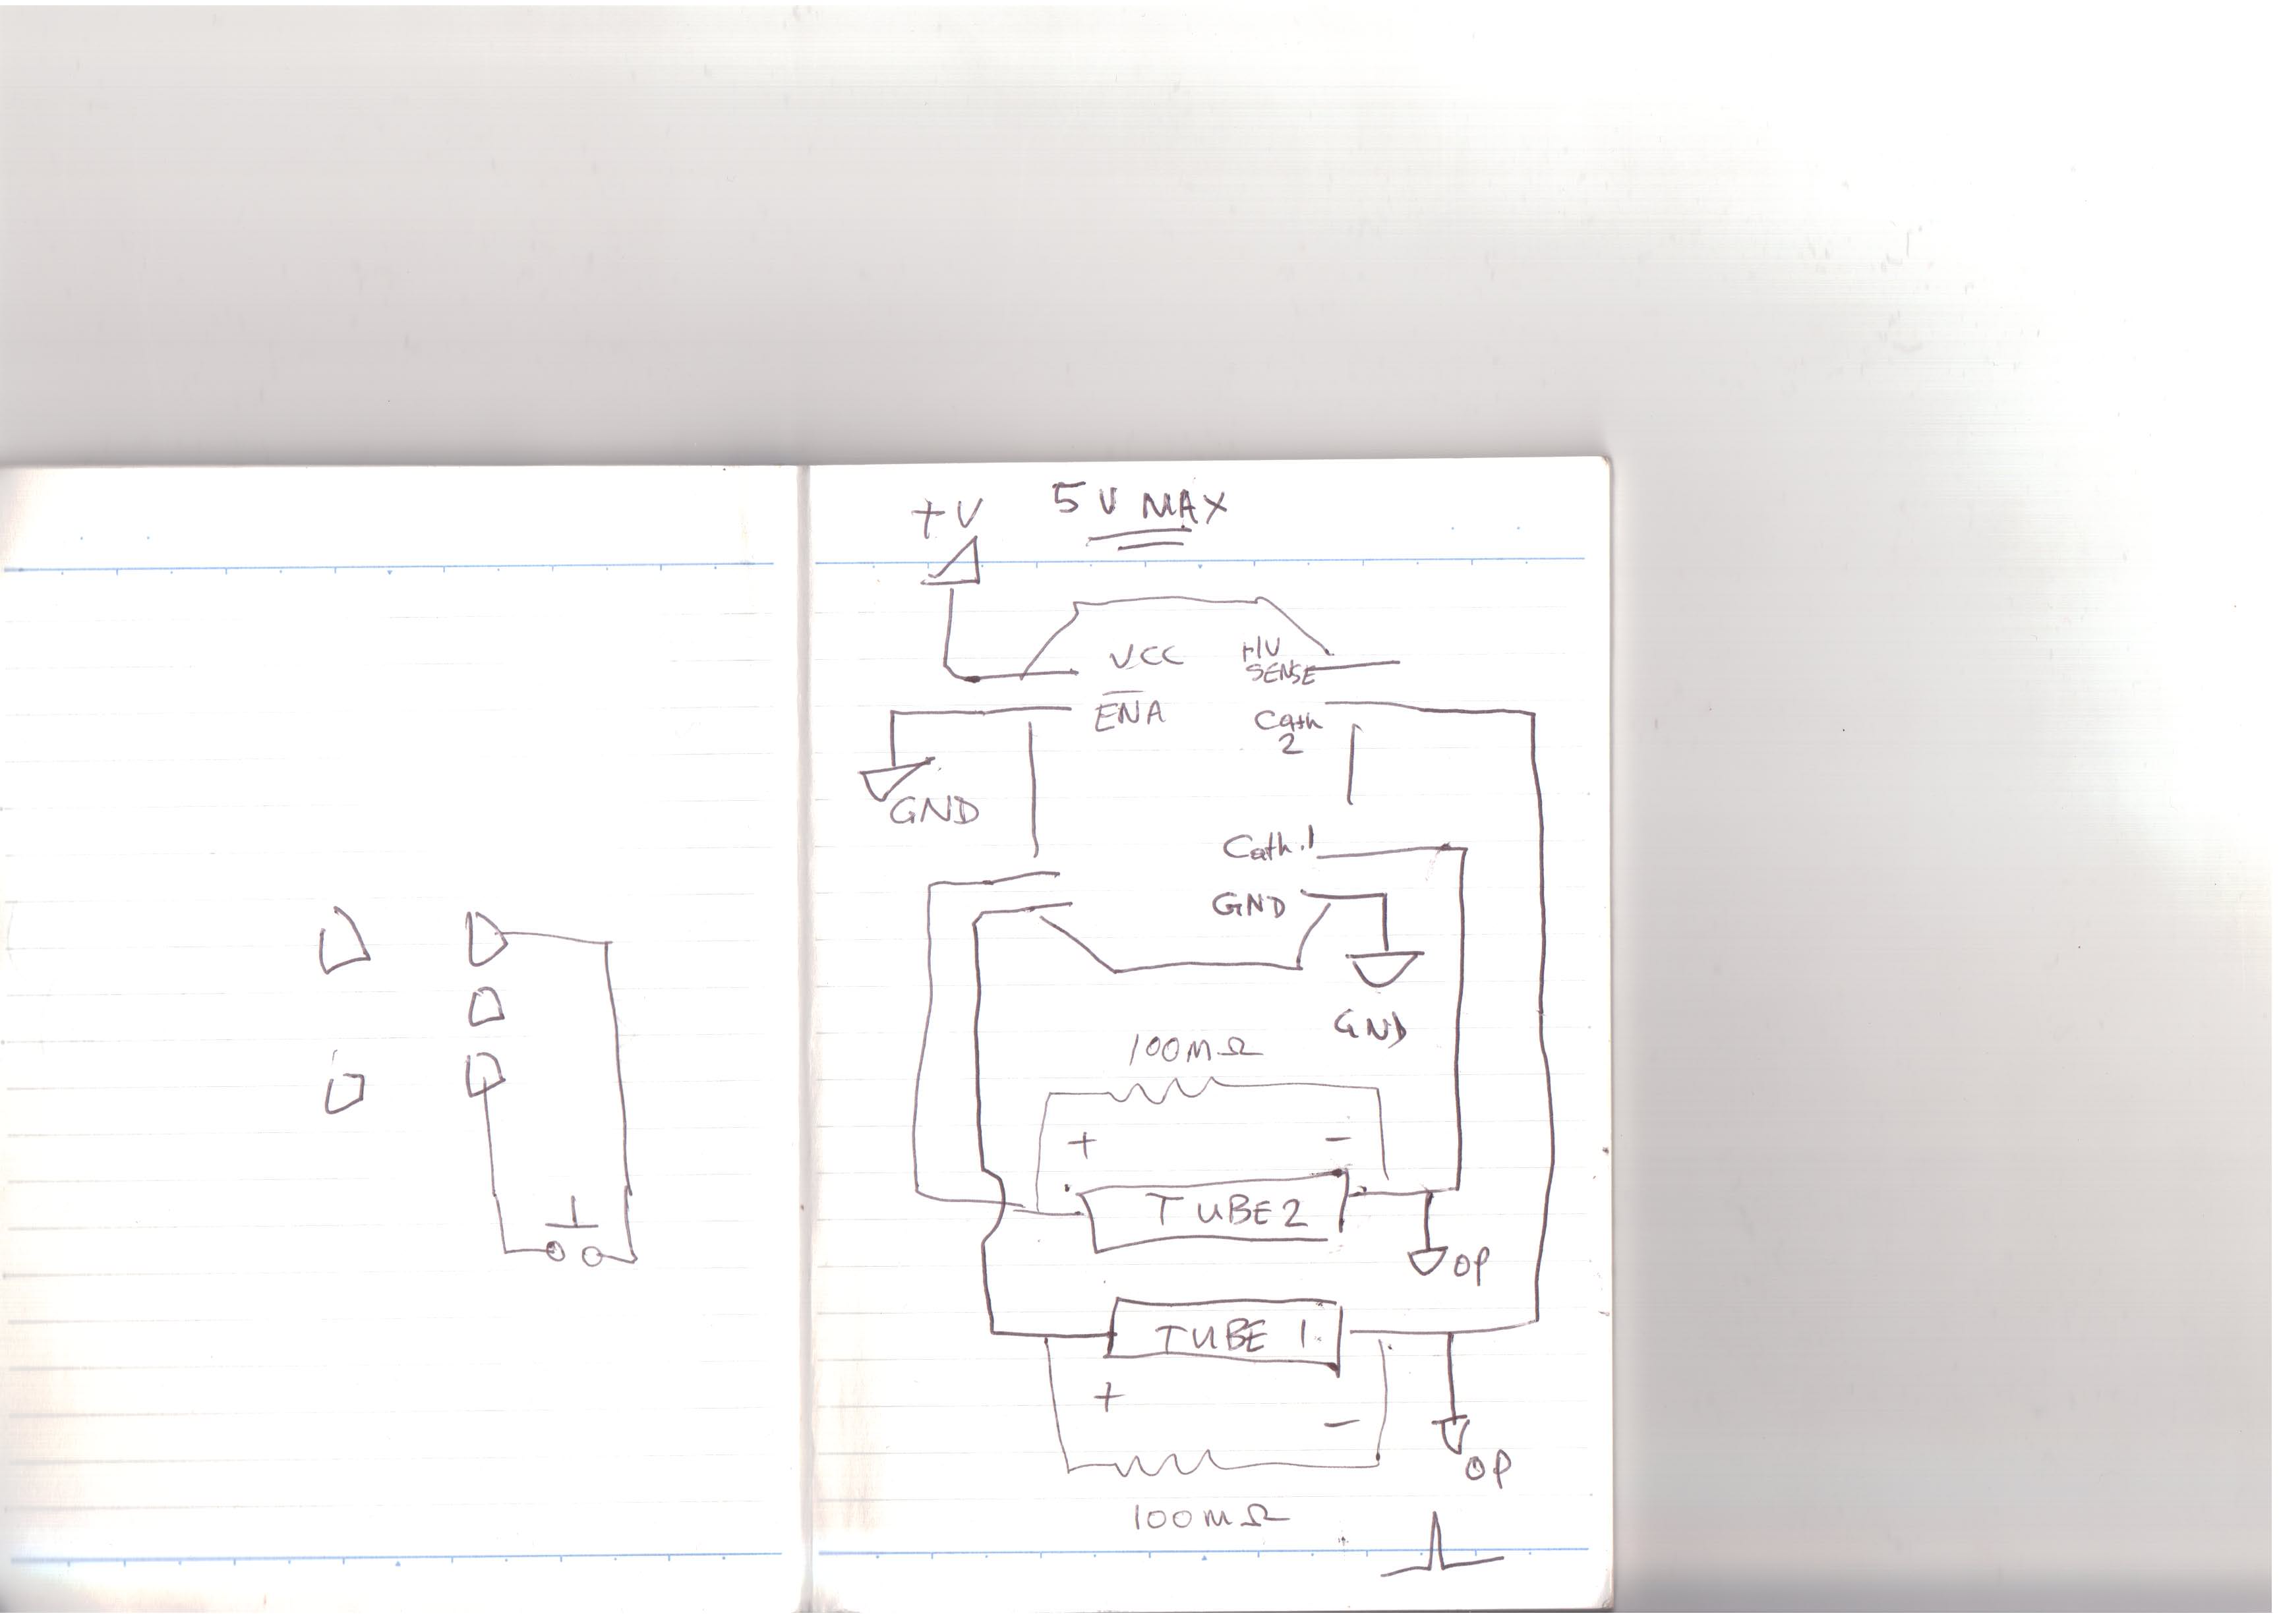 +V 5V MAX
VCC HV
SENSE
E̅N̅A̅ Cath
2
GND
Cath.1
GND
GND
100MΩ
+ -
TUBE2
OP
TUBE 1
+ -
OP
100MΩ